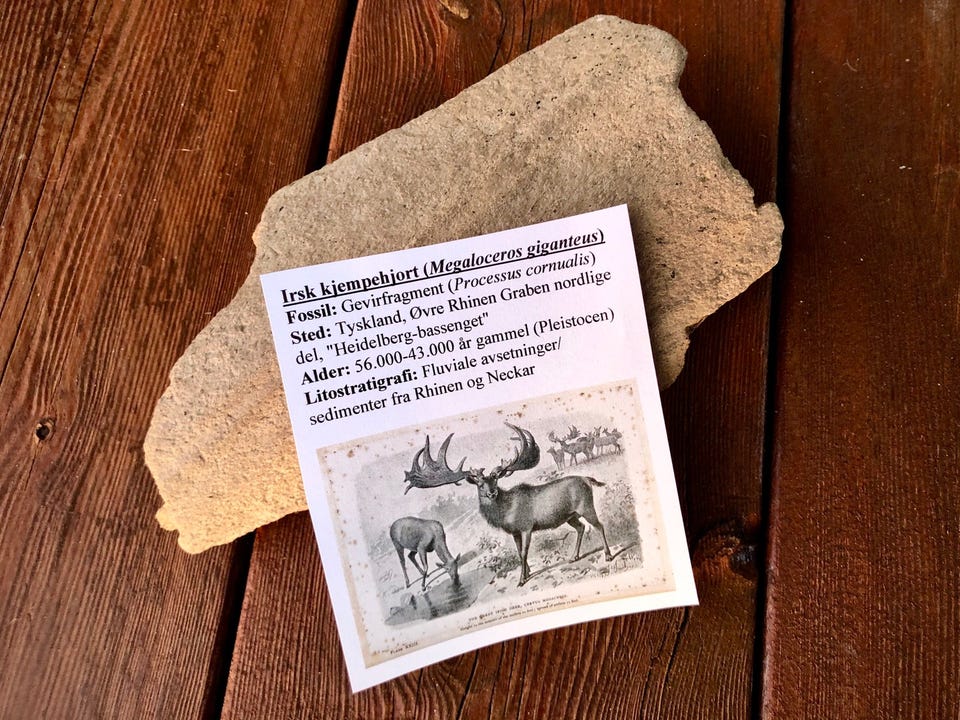 Irsk kjempehjort (Megaloceros giganteus)
Fossil: Gevirfragment (Processus cornualis)
Sted: Tyskland, Øvre Rhinen Graben nordlige
del, "Heidelberg-bassenget"
Alder: 56.000-43.000 år gammel (Pleistocen)
Litostratigrafi: Fluviale avsetninger/
sedimenter fra Rhinen og Neckar
THE GREAT IRISH DEER, CERVUS MEGACEROS.
Plate XXIII